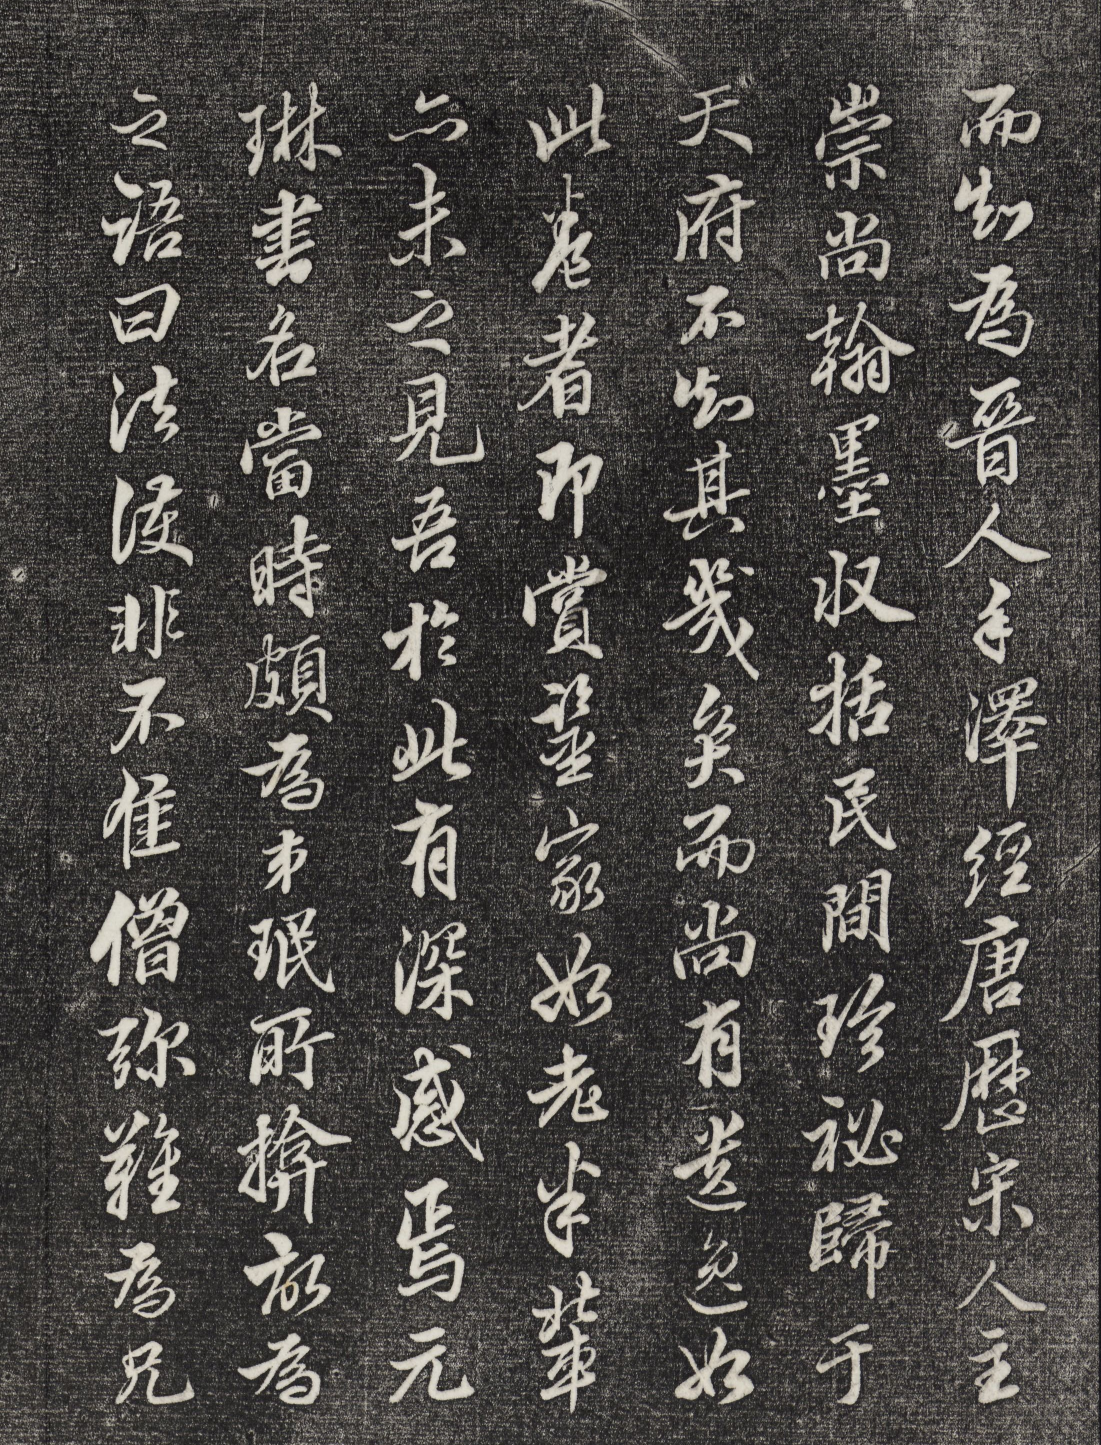 而知為晉人手澤經唐歷宋人主
崇尚翰墨収括民間珍祕歸于
天府不知其幾矣而尚有遺逸如
此卷者即賞鑒家如老米輩
亦未之見吾於此有深感焉元
琳書名當時頗為弟珉所揜故為
之語曰法護非不佳僧彌難為兄